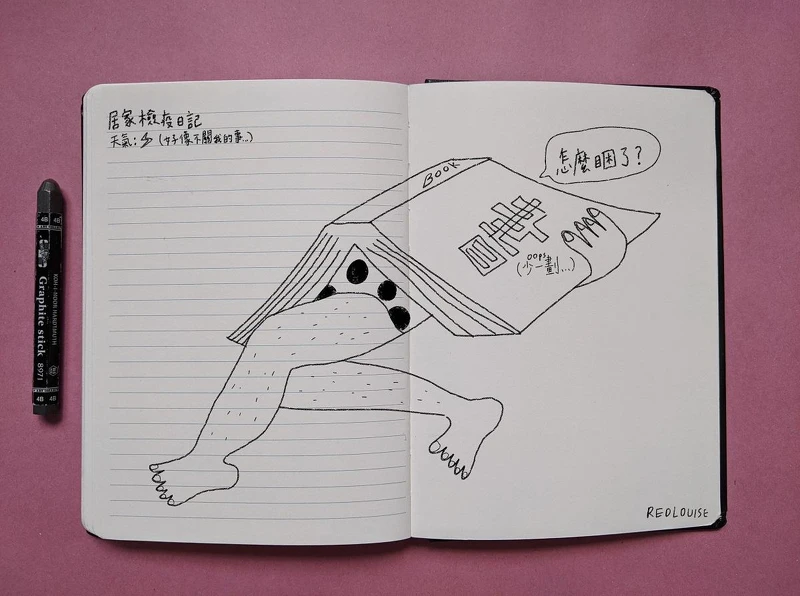 居家檢疫日記
天氣:⚡(好像不關我的事...)
BOOK
怎麼睏了?
oops
(少一劃...)
REDLOUISE
4B 4B
KOH-I-NOOR HARDTMUTH
Graphite stick 8971
4B 4B